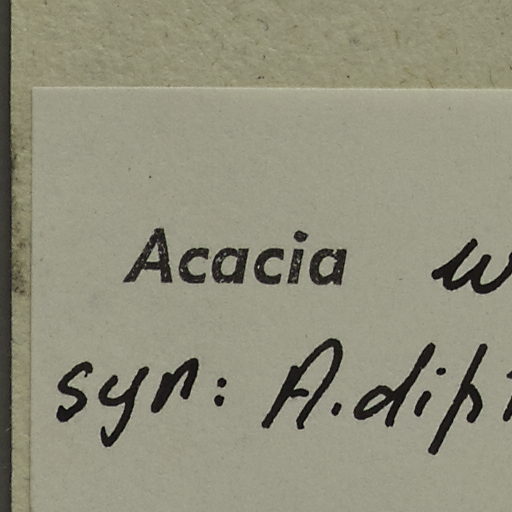 Acacia w
syn: A. dip